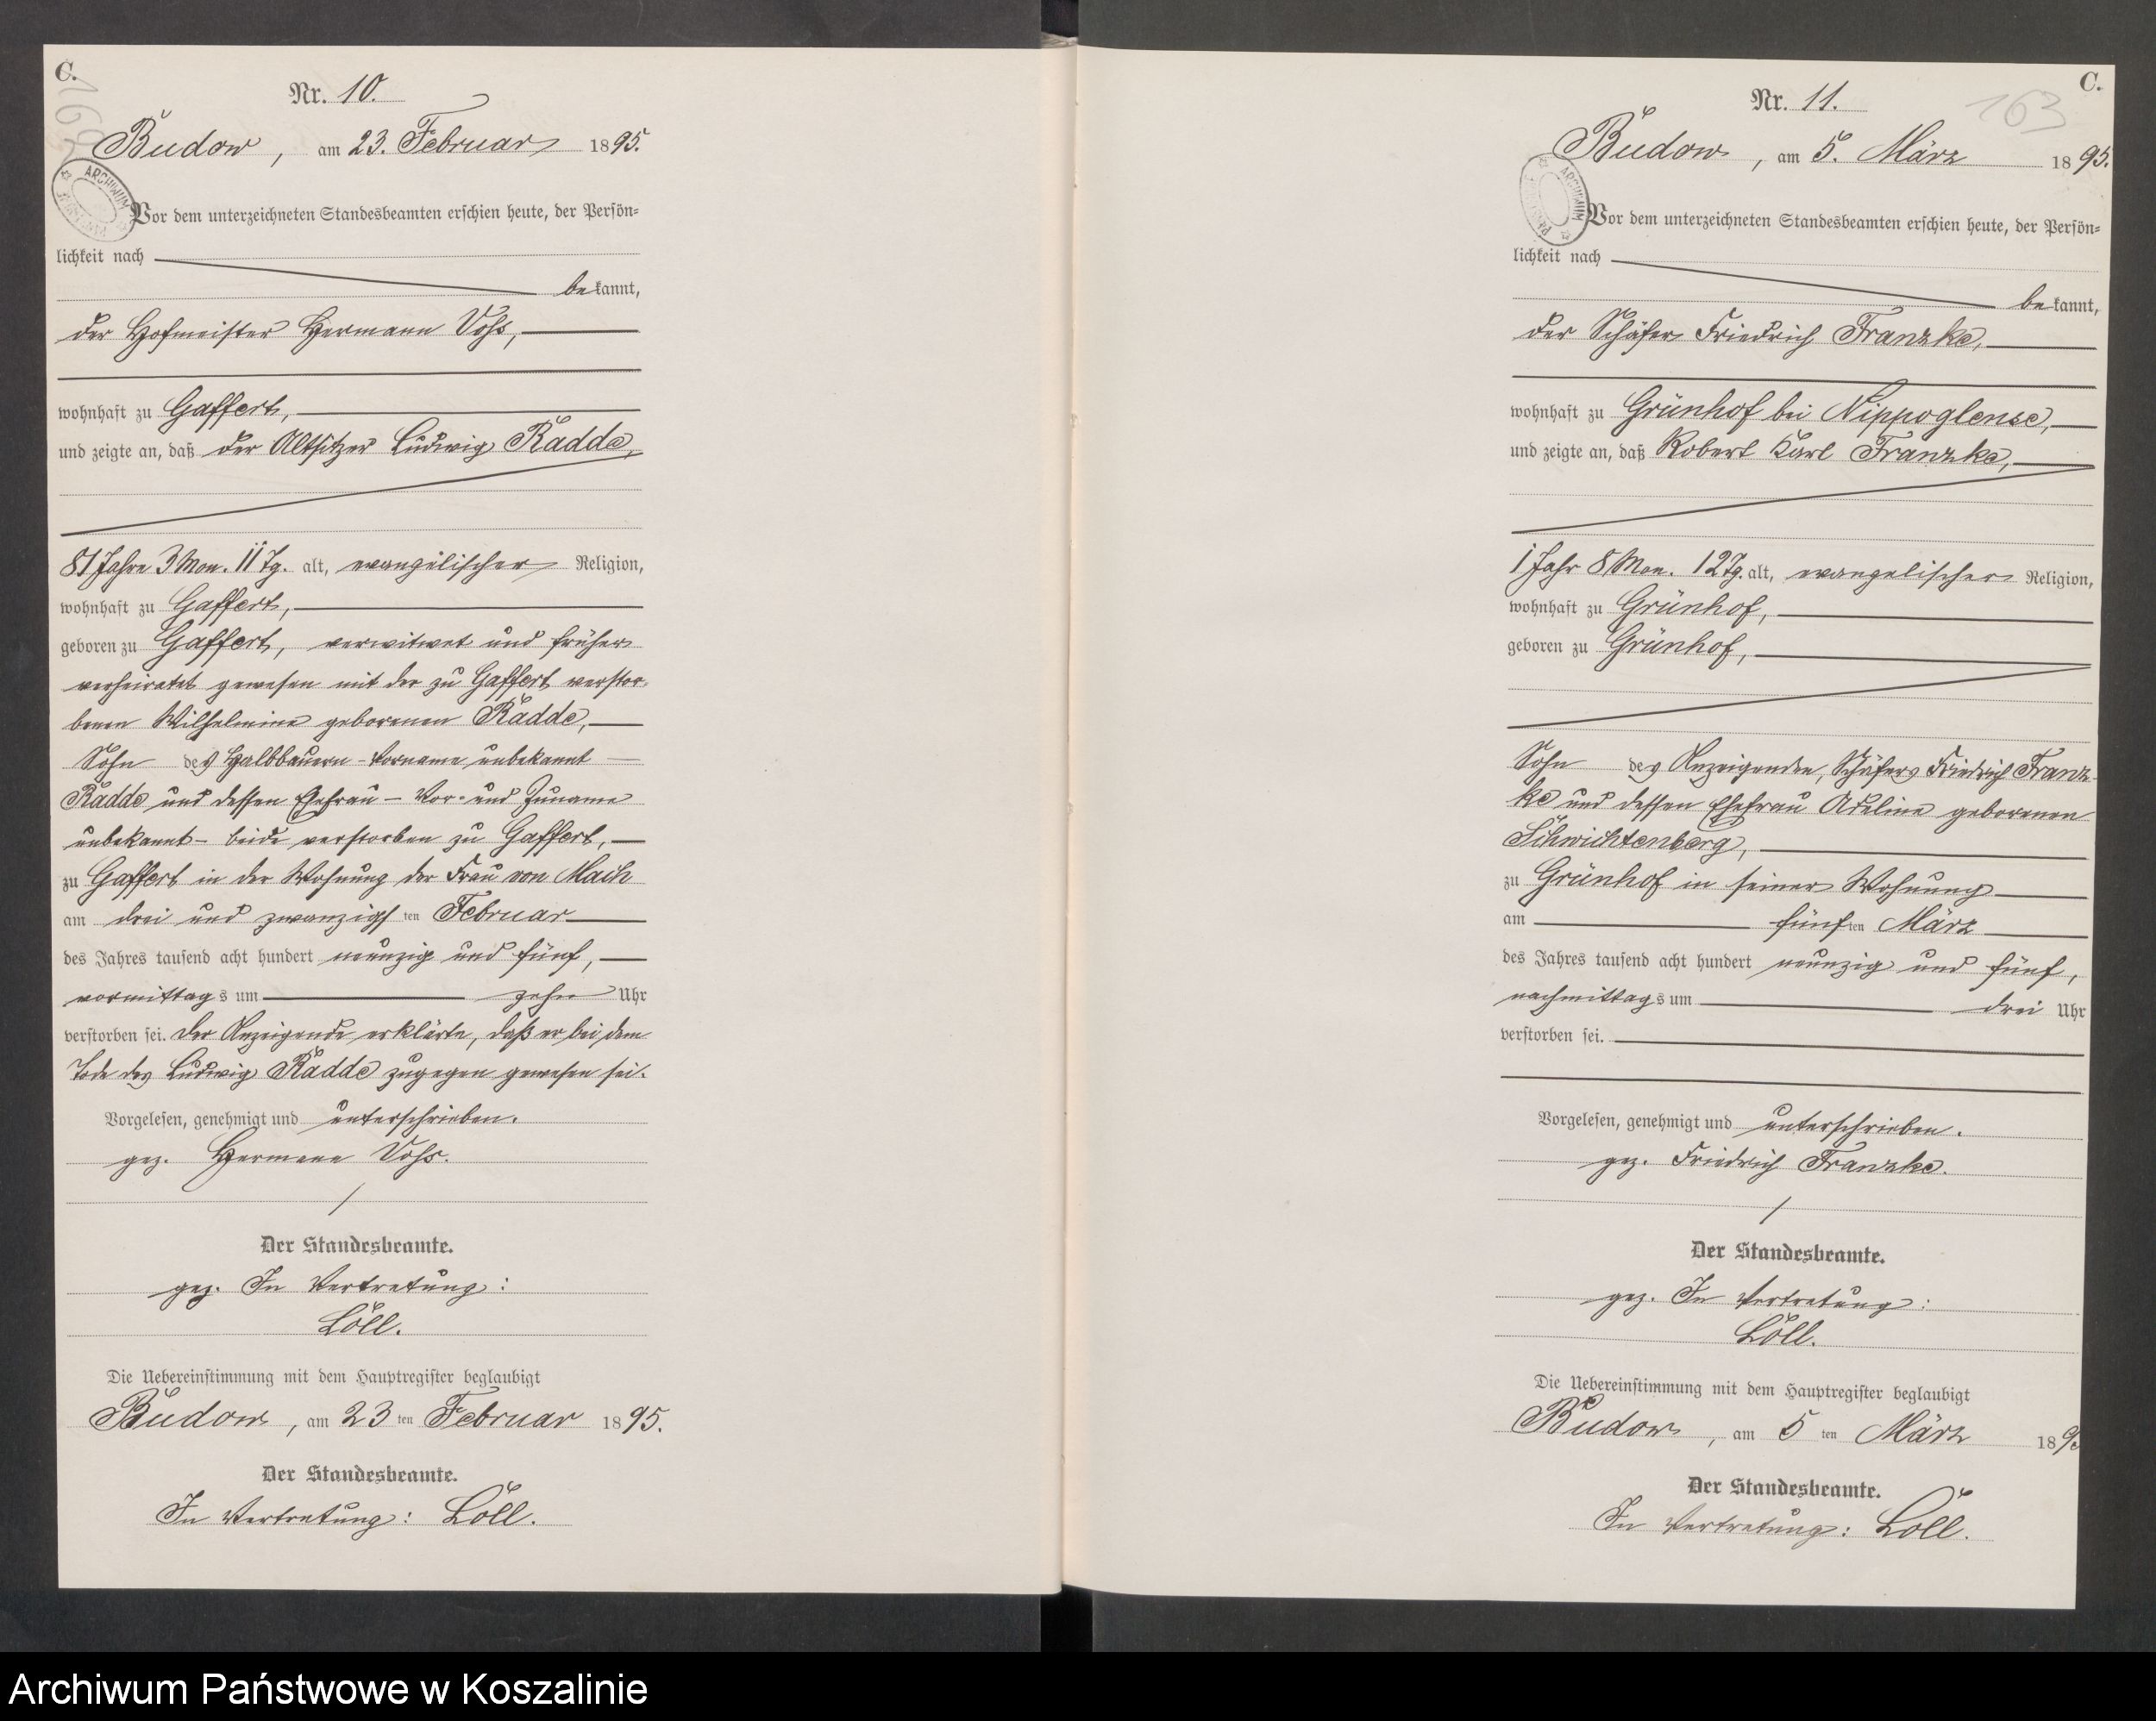 C.
162
Nr. 10.
Budow, am 23. Februar 1895.
ARCHIWUM
Vor dem unterzeichneten Standesbeamten erschien heute, der Persön=
lichkeit nach
bekannt,
der Hofmeister Hermann Voss,
wohnhaft zu Gaffert,
und zeigte an, daß der Altsitzer Ludwig Radde,
81 Jahre 3 Mon. 11 Tg. alt, evangelischer Religion,
wohnhaft zu Gaffert,
geboren zu Gaffert, verwitwet und früher
verheiratet gewesen mit der zu Gaffert verstor-
benen Wilhelmine geborenen Radde,
Sohn des Halbbauern - Vorname unbekannt
Radde und dessen Ehefrau - Vor- und Zuname
unbekannt - beide verstorben zu Gaffert,
zu Gaffert in der Wohnung der Frau von Mach
am drei und zwanzigsten Februar
des Jahres tausend acht hundert neunzig und fünf,
vormittags um zehn Uhr
verstorben sei. Der Anzeigende erklärte, daß er bei dem
Tode des Ludwig Radde zugegen gewesen sei.
Vorgelesen, genehmigt und unterschrieben.
gez. Hermann Voss.
Der Standesbeamte.
gez. In Vertretung:
Löll.
Die Uebereinstimmung mit dem Hauptregister beglaubigt
Budow, am 23 ten Februar 1895.
Der Standesbeamte.
In Vertretung: Löll.
C.
163
Nr. 11.
Budow, am 5. März 1895.
ARCHIWUM
Vor dem unterzeichneten Standesbeamten erschien heute, der Persön=
lichkeit nach
bekannt,
der Schäfer Friedrich Franzke,
wohnhaft zu Grünhof bei Nippoglense,
und zeigte an, daß Robert Karl Franzke,
1 Jahr 8 Mon. 12 Tg. alt, evangelischer Religion,
wohnhaft zu Grünhof,
geboren zu Grünhof,
Sohn des Anzeigenden, Schäfers Friedrich Franz-
ke und dessen Ehefrau Adeline geborenen
Schwichtenberg,
zu Grünhof in seiner Wohnung
am fünften März
des Jahres tausend acht hundert neunzig und fünf,
nachmittags um drei Uhr
verstorben sei.
Vorgelesen, genehmigt und unterschrieben.
gez. Friedrich Franzke.
Der Standesbeamte.
gez. In Vertretung:
Löll.
Die Uebereinstimmung mit dem Hauptregister beglaubigt
Budow, am 5 ten März 189
Der Standesbeamte.
In Vertretung: Löll.
Archiwum Państwowe w Koszalinie